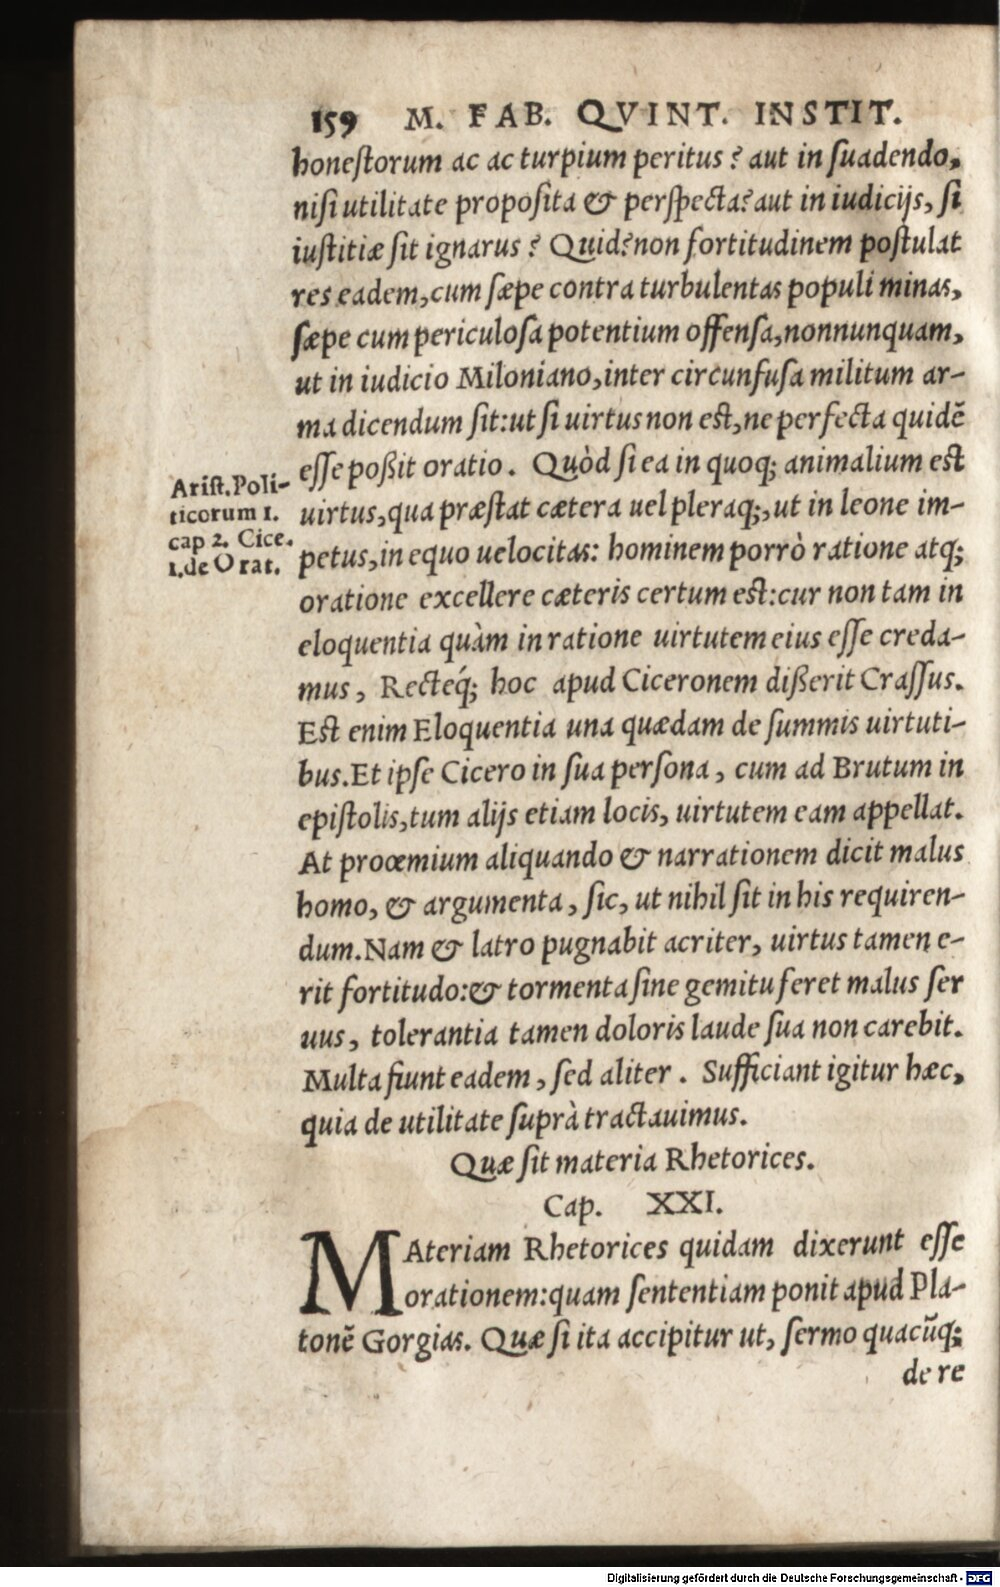 159 M. FAB. QVINT. INSTIT.
honeſtorum ac ac turpium peritus? aut in ſuadendo,
niſi utilitate propoſita & perſpecta? aut in iudicijs, ſi
iuſtitiæ ſit ignarus? Quid? non fortitudinem poſtulat
res eadem, cum ſæpe contra turbulentas populi minas,
ſæpe cum periculoſa potentium offenſa, nonnunquam,
ut in iudicio Miloniano, inter circunfuſa militum ar-
ma dicendum ſit: ut ſi uirtus non eſt, ne perfecta quidē
eſſe poßit oratio. Quòd ſi ea in quoq; animalium eſt
uirtus, qua præſtat cætera uel pleraq;, ut in leone im-
petus, in equo uelocitas: hominem porrò ratione atq;
oratione excellere cæteris certum eſt: cur non tam in
eloquentia quàm in ratione uirtutem eius eſſe creda-
mus, Recteq́; hoc apud Ciceronem dißerit Craſſus.
Eſt enim Eloquentia una quædam de ſummis uirtuti-
bus. Et ipſe Cicero in ſua perſona, cum ad Brutum in
epiſtolis, tum alijs etiam locis, uirtutem eam appellat.
At proœmium aliquando & narrationem dicit malus
homo, & argumenta, ſic, ut nihil ſit in his requiren-
dum. Nam & latro pugnabit acriter, uirtus tamen e-
rit fortitudo: & tormenta ſine gemitu feret malus ſer
uus, tolerantia tamen doloris laude ſua non carebit.
Multa fiunt eadem, ſed aliter. Sufficiant igitur hæc,
quia de utilitate ſuprà tractauimus.
Ariſt. Poli-
ticorum 1.
cap 2. Cice.
1. de Orat.
Quæ ſit materia Rhetorices.
Cap. XXI.
MAteriam Rhetorices quidam dixerunt eſſe
orationem: quam ſententiam ponit apud Pla-
tonē Gorgias. Quæ ſi ita accipitur ut, ſermo quacūq;
de re
Digitalisierung gefördert durch die Deutsche Forschungsgemeinschaft - DFG